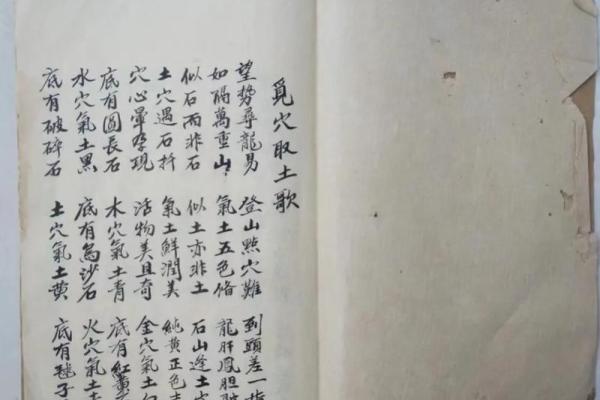 覓穴取土歌
望勢尋龍易 登山點穴難 到頭差一指
如隔萬重山 氣土五色俻 龍肝鳳胆
似石而非石 似土亦非土 石山逢土
土穴遇石扦 氣土鮮潤美 純黄正色
穴心暈現 活物美且奇 金穴氣土
底有圓長石 木穴氣土青 底有紅黄
水穴氣土黑 底有烏沙石 火穴氣土
底有破碎石 土穴氣土黄 底有毬子